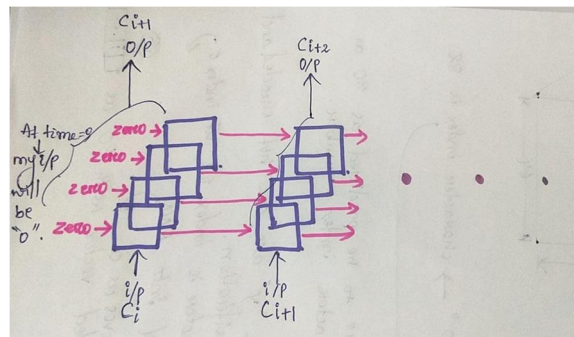 Ci+1
O/P
Ci+2
O/P
At time=0
my i/p
will
be
"0".
zero
zero
zero
zero
i/p
Ci
i/p
Ci+1